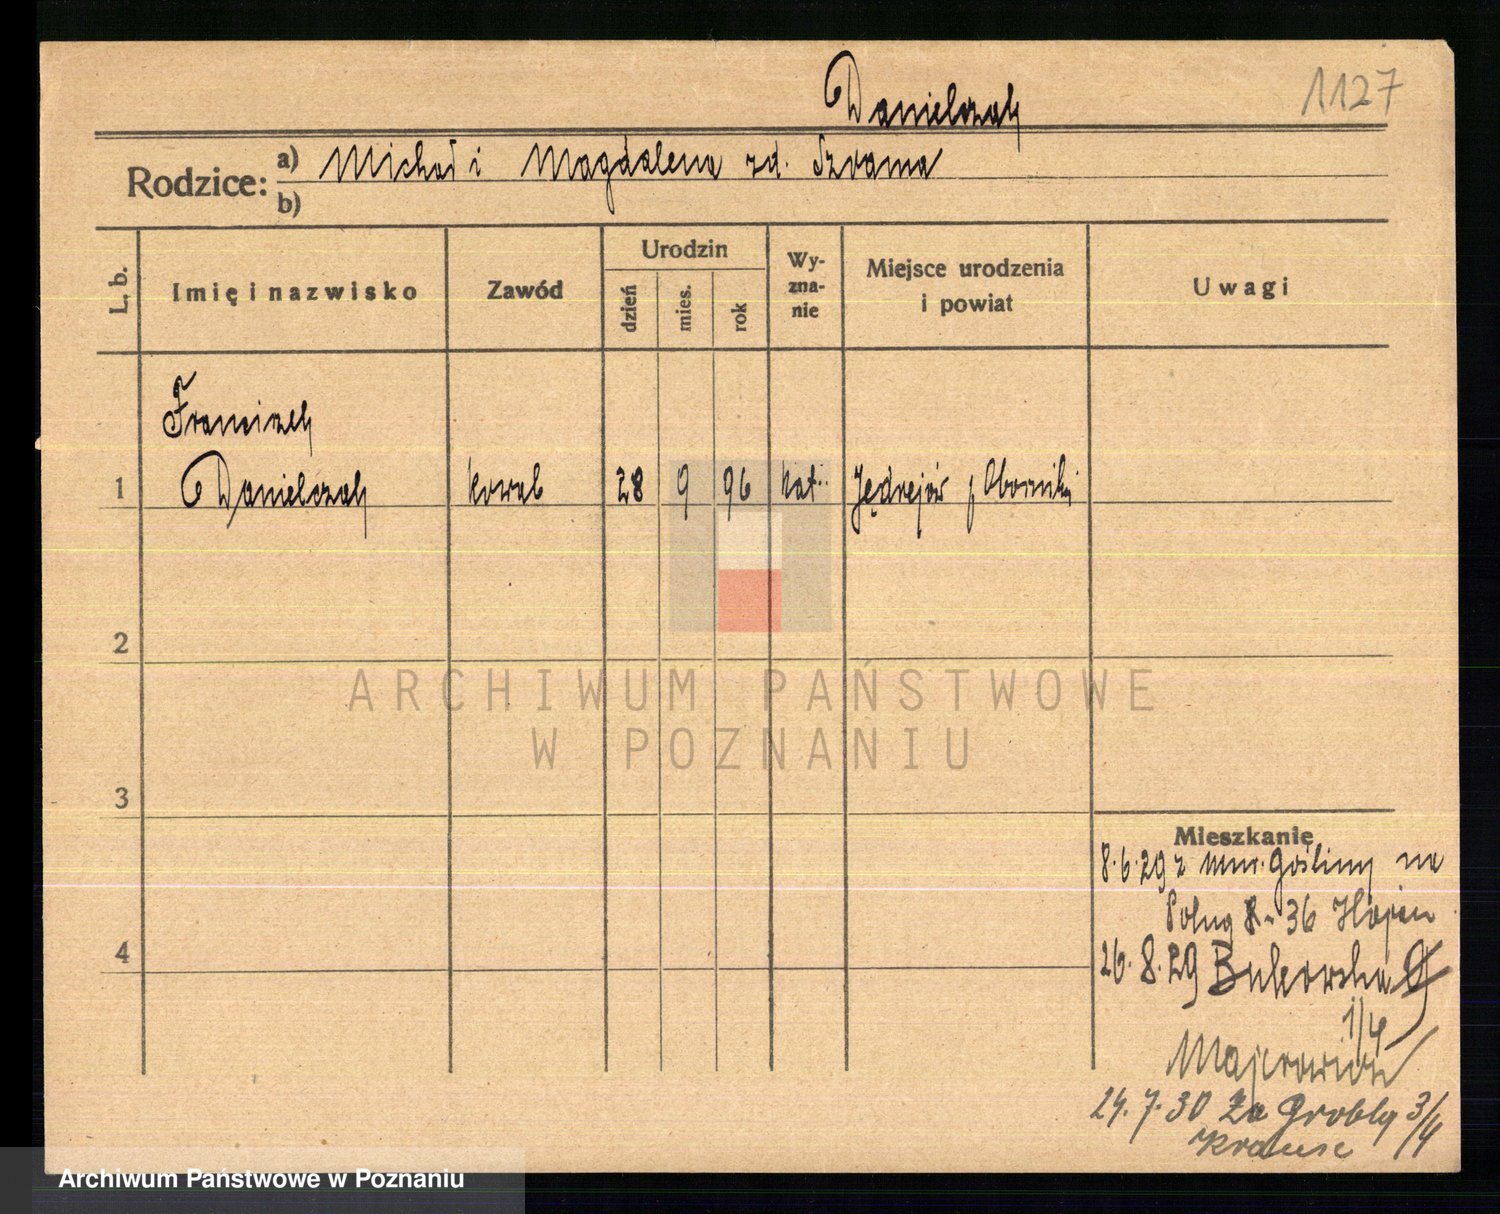 Danielczak
1127
Rodzice:
a) Michał i Magdalena zd. Szrama
b)
L. b.
Imię i nazwisko
Zawód
Urodzin
dzień
mies.
rok
Wy-
zna-
nie
Miejsce urodzenia
i powiat
Uwagi
Franciszek
1 Danielczak kowal 28 9 96 kat. Jędrzejów p Oborniki
2
3
4
ARCHIWUM PAŃSTWOWE
W POZNANIU
Mieszkanie
8.6.29 z Mur. Gośliny na
Polną 36
26.8.29 Bukowska
1/4
Majerowicz
24.7.30 Za Groblą 3/4
Krause
Archiwum Państwowe w Poznaniu